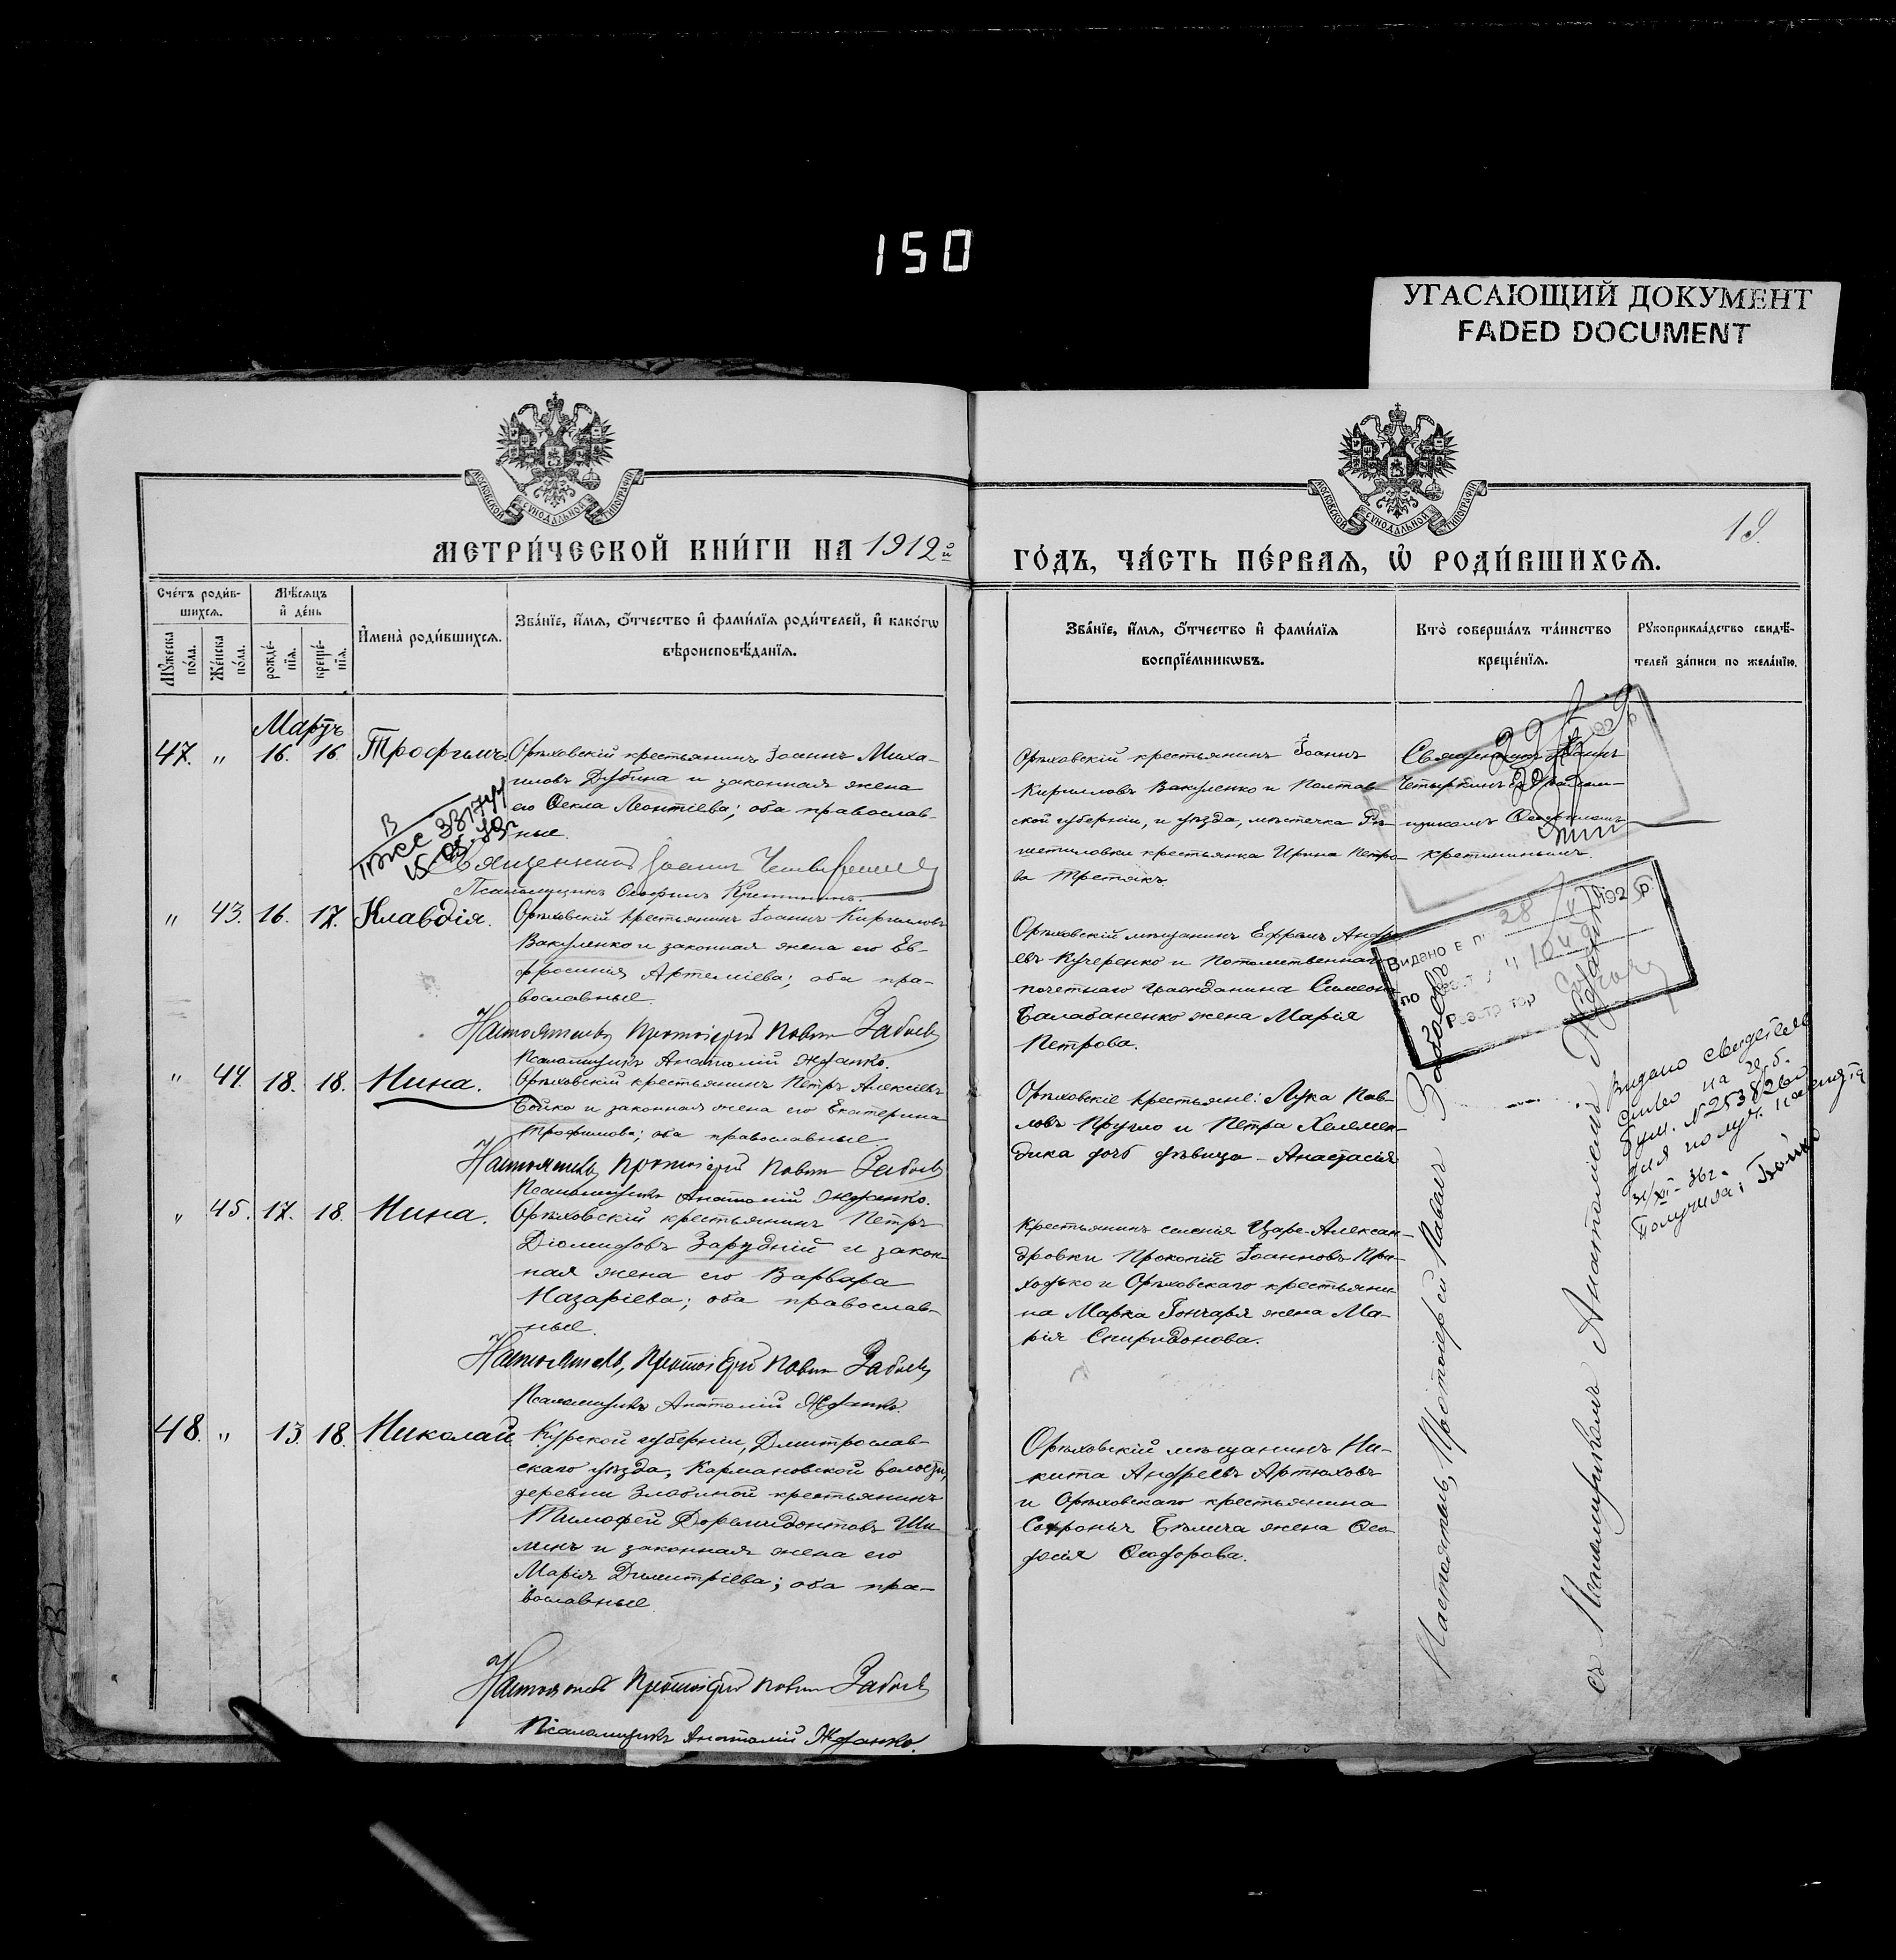 150
УГАСАЮЩИЙ ДОКУМЕНТ
FADED DOCUMENT
МОСКОВСКОЙ СУНОДАЛЬНОЙ ТИПОГРАФІИ
МОСКОВСКОЙ СУНОДАЛЬНОЙ ТИПОГРАФІИ
МЕТРИ́ЧЕСКОЙ КНИ́ГИ НА 1912й
ГО́ДЪ, ЧА́СТЬ ПЕ́РВАѦ, Ѡ РОДИ́ВШИХСѦ.
19.
Сче́тъ роди́в-
шихсѧ.
Мꙋ́жеска
по́ла.
Же́нска
по́ла.
Мѣ́сѧцъ
и де́нь
рожде́-
нїѧ.
креще́-
нїѧ.
Имена̀ роди́вшихсѧ.
Зва́нїе, и́мѧ, ѻ́тчество и фами́лїѧ роди́телей, и како́гѡ
вѣроисповѣ́данїѧ.
Зва́нїе, и́мѧ, ѻ́тчество и фами́лїѧ
воспрїе́мникѡвъ.
Кто̀ соверша́лъ та́инство
креще́нїѧ.
Рꙋкоприкла́дство свидѣ́-
телей за́писи по жела́нїю.
Мартъ
47. " 16. 16. Трофимъ
Орѣховскій крестьянинъ Іоаннъ Миха-
иловъ Дубина и законная жена
его Ѳекла Леонтіева; оба православ-
ные.
Священникъ Іоаннъ
Псаломщикъ
Орѣховскій крестьянинъ Іоаннъ
Кирилловъ Вакуленко и Полтав-
ской губерніи, и уѣзда, мѣстечка Рѣ-
шетиловки крестьянка Ирина Петро-
ва Третякъ.
Священникъ Іоаннъ
" 43. 16. 17. Клавдія.
Орѣховскій крестьянинъ Іоаннъ Кирилловъ
Вакуленко и законная жена его Ев-
фросинія Артеміева; оба пра-
вославные.
Настоятель, Протоіерей Павелъ
Псаломщикъ Анатолій Жданко.
Орѣховскій мѣщанинъ Ефремъ Андре-
евъ Кучеренко и Потомственнаго
почетнаго гражданина Симеона
Балабаненко жена Марія
Петрова.
Видано
192
по
Реєстратор
" 44. 18. 18. Нина.
Орѣховскій крестьянинъ Петръ Алексіевъ
Бойко и законная жена его Екатерина
Трофимова; оба православные.
Настоятель, Протоіерей Павелъ
Псаломщикъ Анатолій Жданко.
Орѣховскіе крестьяне: Лука Пав-
ловъ и Петра
дочь дѣвица Анастасія
Видано свидетель
ство на
бум. N 253826
для получ. паспорта
31/XI - 36г.
Получила: Бойко
" 45. 17. 18. Нина.
Орѣховскій крестьянинъ Петръ
Діомидовъ Зарудній и закон-
ная жена его Варвара
Назаріева; оба православ-
ные.
Настоятель, Протоіерей Павелъ
Псаломщикъ Анатолій Жданко
Крестьянинъ селенія Царе-Алексан-
дровки Прокопій Іоанновъ При-
ходько и Орѣховскаго крестьяни-
на Марка Гончаря жена Ма-
рія Спиридонова.
48. " 13. 18. Николай
Курской губерніи, Дмитрослав-
скаго уѣзда, Кармановской волости,
деревни крестьянинъ
Тимофей Дормидонтовъ Ши-
линъ и законная жена его
Марія Димитріева; оба пра-
вославные.
Настоятель Протоіерей Павелъ
Псаломщикъ Анатолій Жданко.
Орѣховскій мѣщанинъ Ни-
кита Андреевъ Артюховъ
и Орѣховскаго крестьянина
Софронія Бѣлича жена Ѳео-
досія Ѳеодорова.
Настоятель, Протоіерей Павелъ
съ Псаломщикомъ Анатоліемъ Жданко